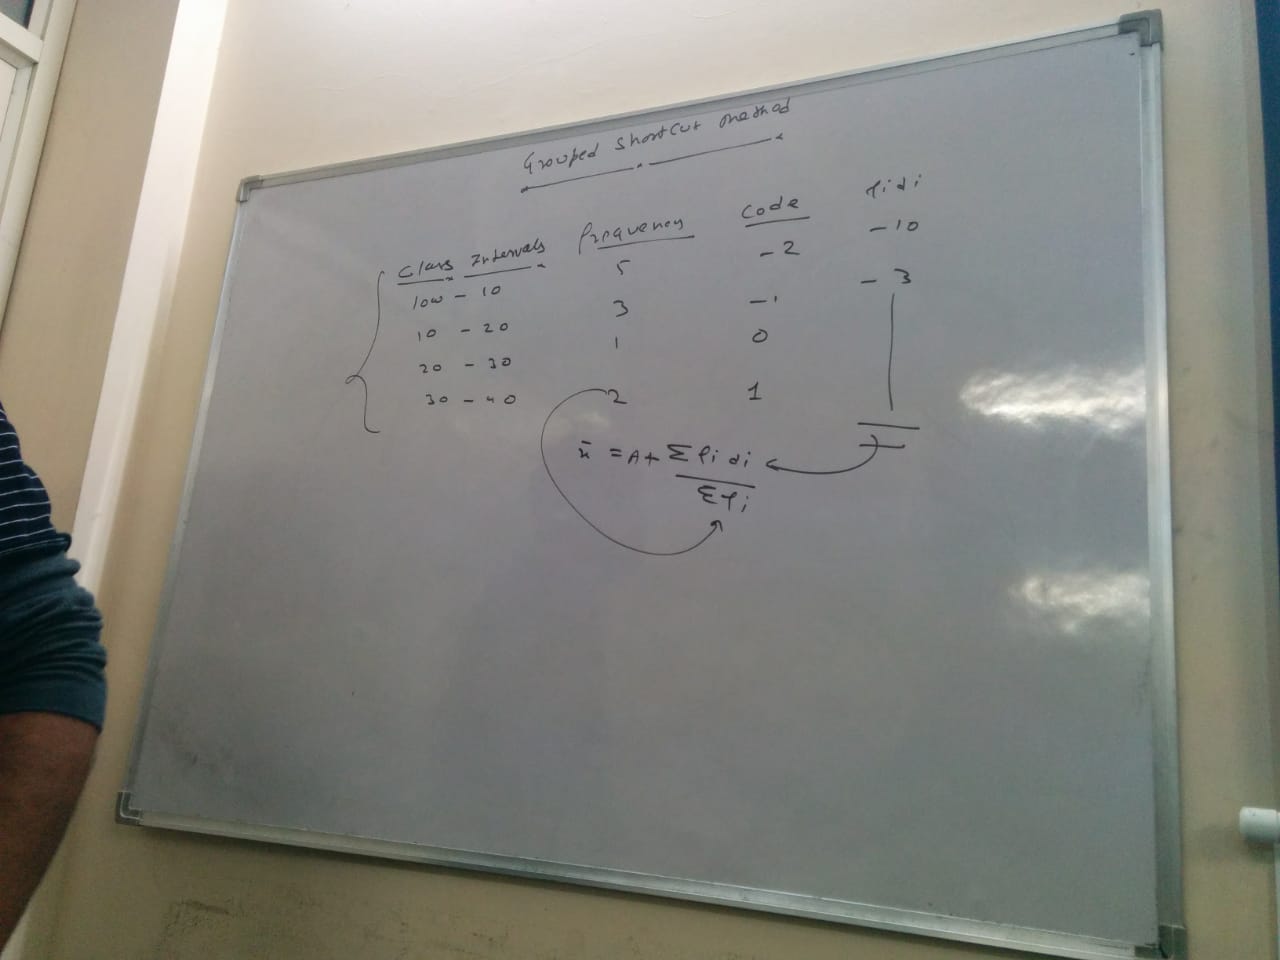 Grouped shortcut method
Class Intervals frequency code fidi
low - 10 5 -2 -10
10 - 20 3 -1 -3
20 - 30 1 0
30 - 40 2 1
x̄ = A + Σfidi
Σfi